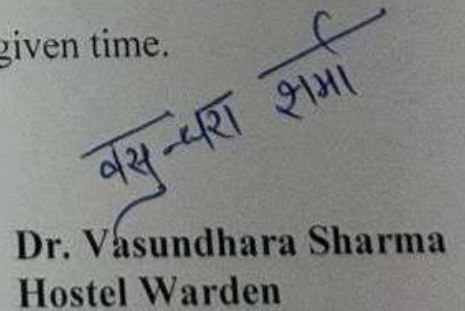 given time.
वसुन्धरा शर्मा
Dr. Vasundhara Sharma
Hostel Warden